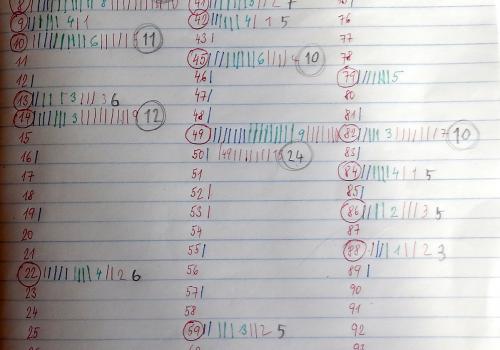 9 4 1
10 6 5 11
11
12 |
13 3 3 6
14 3 9 12
15
16 |
17
18
19 |
20
21
22 4 2 6
23
24
25
42 4 1 5
43 |
45 6 4 10
46 |
47 |
48 |
49 9
50 15 24
51
52 |
53 |
54
55 |
56
57 |
58
59 3 2 5
76
77
78
79 5
80
81 |
82 3 7 10
83 |
84 4 1 5
85 |
86 2 3 5
87
88 1 2 3
89 |
90
91
92